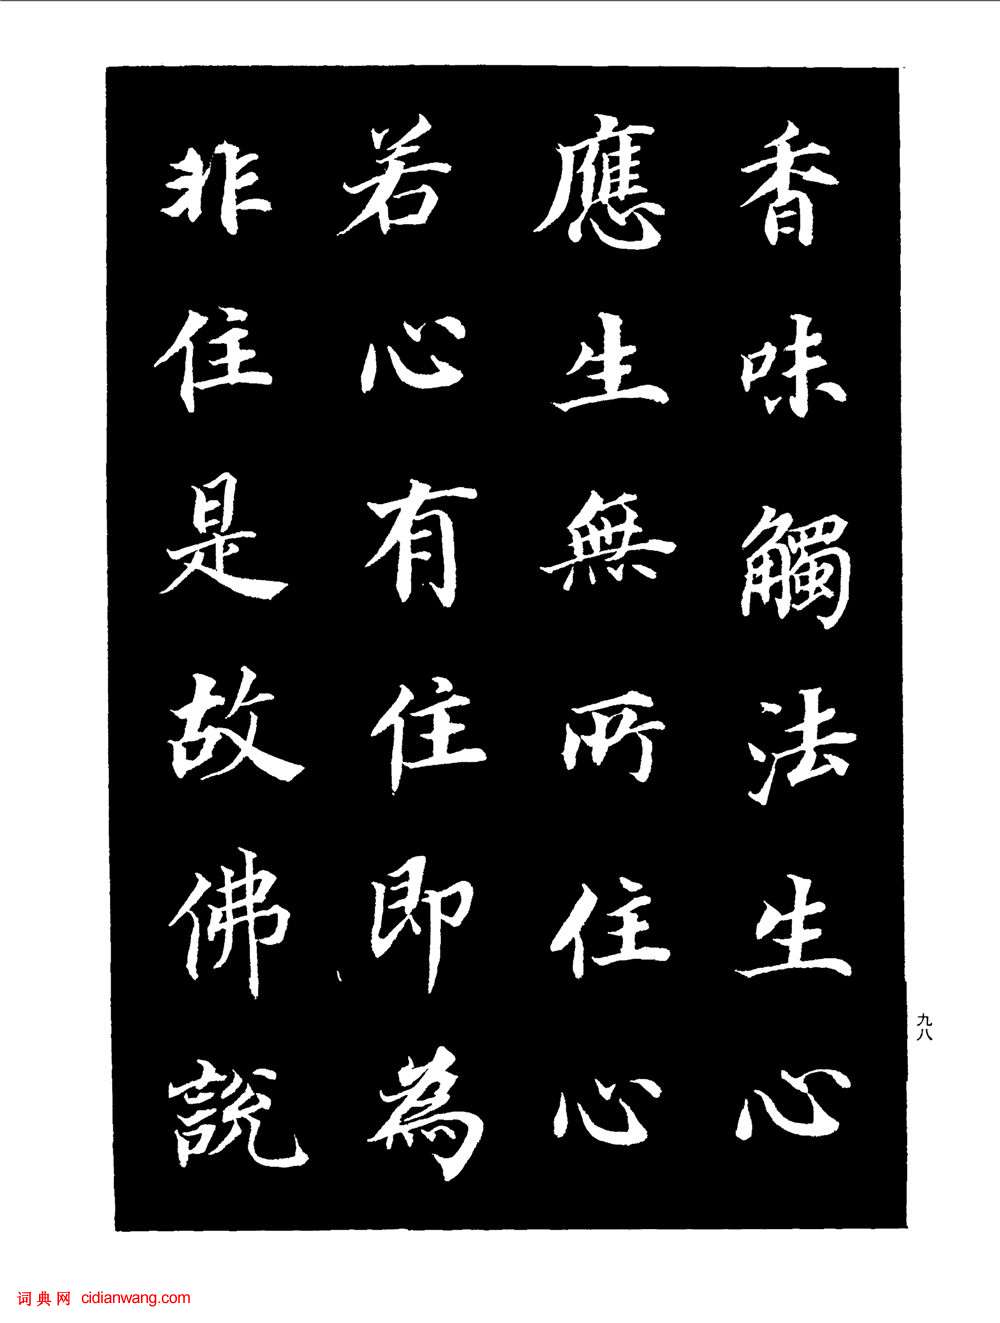 香味觸法生心
應生無所住心
若心有住即為
非住是故佛說
九八
词典网 cidianwang.com